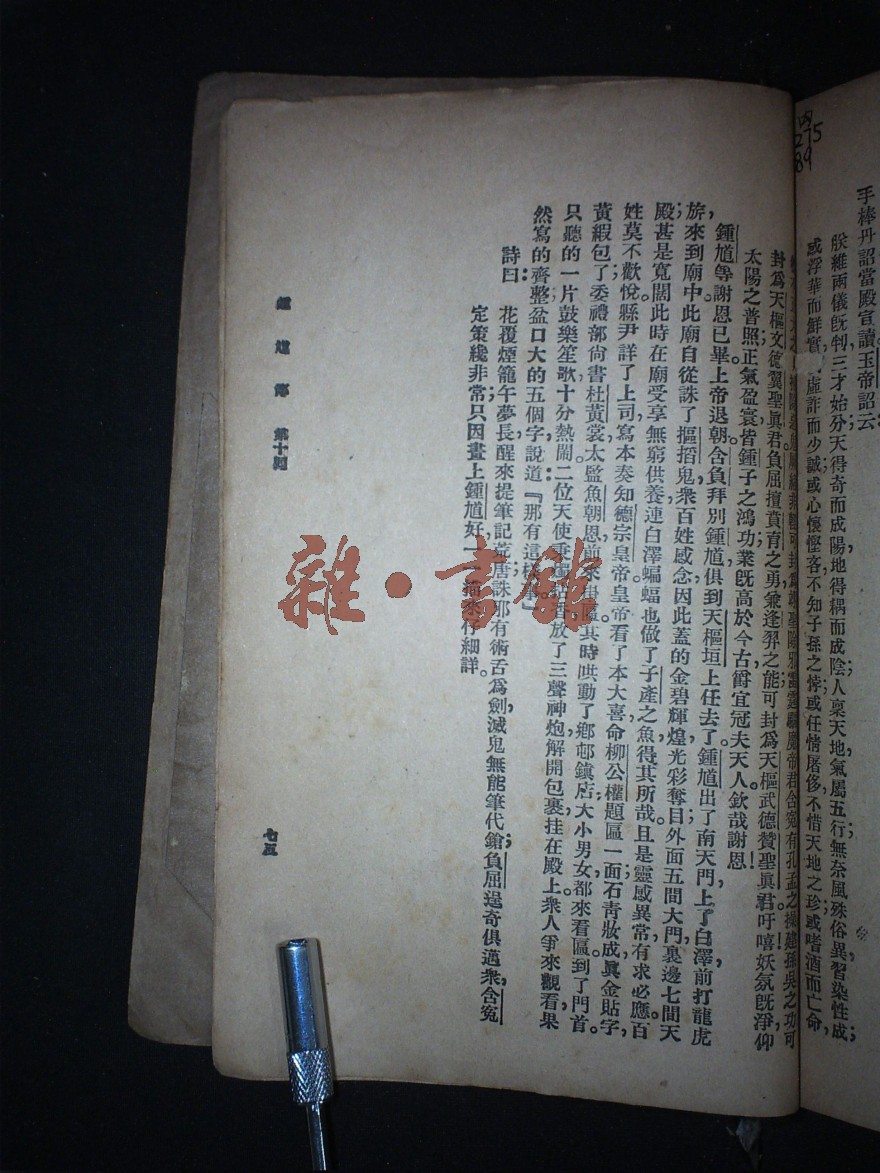 四
275
89
手捧丹詔當殿宣讀玉帝詔云：
朕維兩儀旣判三才始分天得奇而成陽地得耦而成陰人稟天地氣屬五行無奈風殊俗異習染性成；
或浮華而鮮實虛詐而少誠或心懷慳吝不知子孫之悖或任情屠侈不惜天地之珍或嗜酒而亡命，
可封爲翊聖除邪雷霆驅魔帝君含寃有孔孟之操建孫吳之功可
封爲天樞文德翼聖眞君負屈擅賁育之勇兼逢羿之能可封爲天樞武德贊聖眞君吁嘻妖氛旣淨仰
太陽之普照正氣盈寰皆鍾子之鴻功業旣高於今古爵宜冠夫天人欽哉謝恩！
鍾馗等謝恩已畢上帝退朝含負拜別鍾馗俱到天樞垣上任去了鍾馗出了南天門上了白澤前打龍虎
旂，來到廟中此廟自從誅了摳搯鬼衆百姓感念因此蓋的金碧輝煌光彩奪目外面五間大門裏邊七間天
殿甚是寬闊此時在廟受享無窮供養連白澤蝙蝠也做了子產之魚得其所哉且是靈感異常有求必應百
姓莫不歡悅縣尹詳了上司寫本奏知德宗皇帝皇帝看了本大喜命柳公權題匾一面石靑妝成眞金貼字，
黃緞包了委禮部尙書杜黃裳太監魚朝恩前來掛匾其時哄動了鄉邨鎭店大小男女都來看匾到了門首。
只聽的一片鼓樂笙歌十分熱鬧二位天使放了三聲神炮解開包裹挂在殿上衆人爭來觀看果
然寫的齊整盆口大的五個字說道：『那有這』
詩曰：
花覆煙籠午夢長醒來提筆記荒唐誅邪有術舌爲劍滅鬼無能筆代鎗負屈逞奇俱邁衆含寃
定策纔非常只因畫上鍾馗好一一描來仔細詳。
第十回
七五
雜·書館